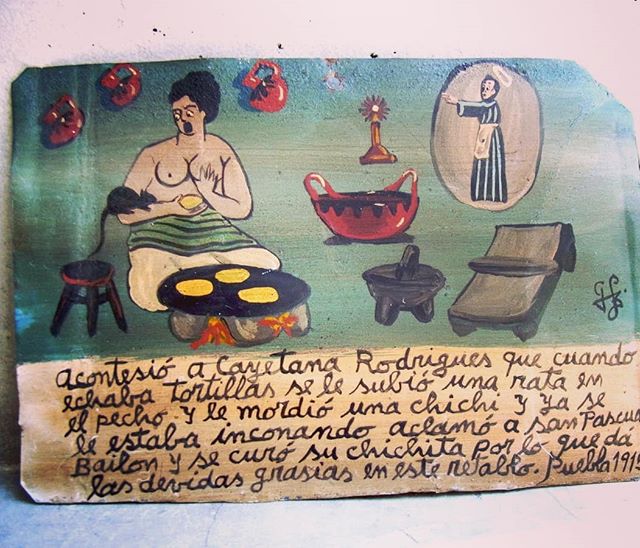 G S.
acontesió a Cayetana Rodrigues que cuando
echaba tortillas se le subió una rata en
el pecho y le mordió una chichi y ya se
le estaba inconando aclamó a san Pascual
Bailon y se curó su chichita por lo que da
las devidas grasias en este retablo. Puebla 191